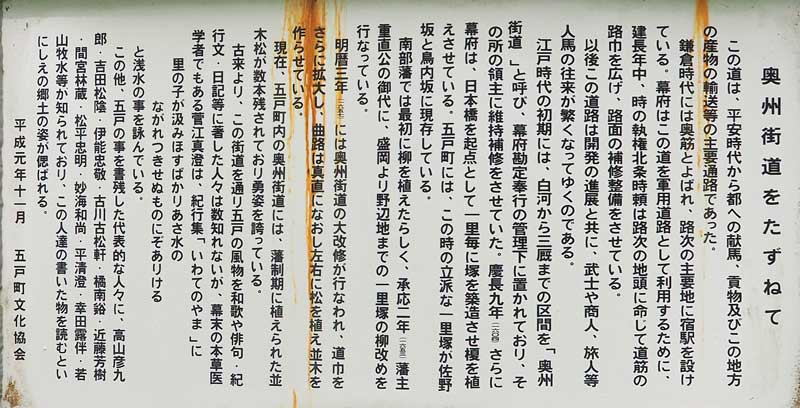 奥州街道をたずねて
この道は、平安時代から都への献馬、貢物及びこの地方
の産物の輸送等の主要通路であった。
鎌倉時代には奥筋とよばれ、路次の主要地に宿駅を設け
ている。幕府はこの道を軍用道路として利用するために、
建長年中、時の執権北条時頼は路次の地頭に命じて道筋の
路巾を広げ、路面の補修整備をさせている。
以後この道路は開発の進展と共に、武士や商人、旅人等
人馬の往来が繁くなってゆくのである。
江戸時代の初期には、白河から三厩までの区間を「奥州
街道」と呼び、幕府勘定奉行の管理下に置かれており、そ
の所の領主に維持補修をさせていた。慶長九年(一六〇四)さらに
幕府は、日本橋を起点として一里毎に塚を築造させ榎を植
えさせている。五戸町には、この時の立派な一里塚が佐野
坂と鳥内坂に現存している。
南部藩では最初に柳を植えたらしく、承応二年(一六五三)藩主
重直公の御代に、盛岡より野辺地までの一里塚の柳改めを
行なっている。
明暦三年(一六五七)には奥州街道の大改修が行なわれ、道巾を
さらに拡大し、曲路は真直になおし左右に松を植え並木を
作らせている。
現在、五戸町内の奥州街道には、藩制期に植えられた並
木松が数本残されており勇姿を誇っている。
古来より、この街道を通り五戸の風物を和歌や俳句・紀
行文・日記等に著した人々は数知れないが、幕末の本草医
学者でもある菅江真澄は、紀行集「いわてのやま」に
里の子が汲みほすばかりあさ水の
ながれつきせぬものにぞありける
と浅水の事を詠んでいる。
この他、五戸の事を書残した代表的な人々に、高山彦九
郎・吉田松陰・伊能忠敬・古川古松軒・橘南谿・近藤芳樹
・間宮林蔵・松平忠明・妙海和尚・平清澄・幸田露伴・若
山牧水等が知られており、この人達の書いた物を読むとい
にしえの郷土の姿が偲ばれる。
平成元年十一月　五戸町文化協会